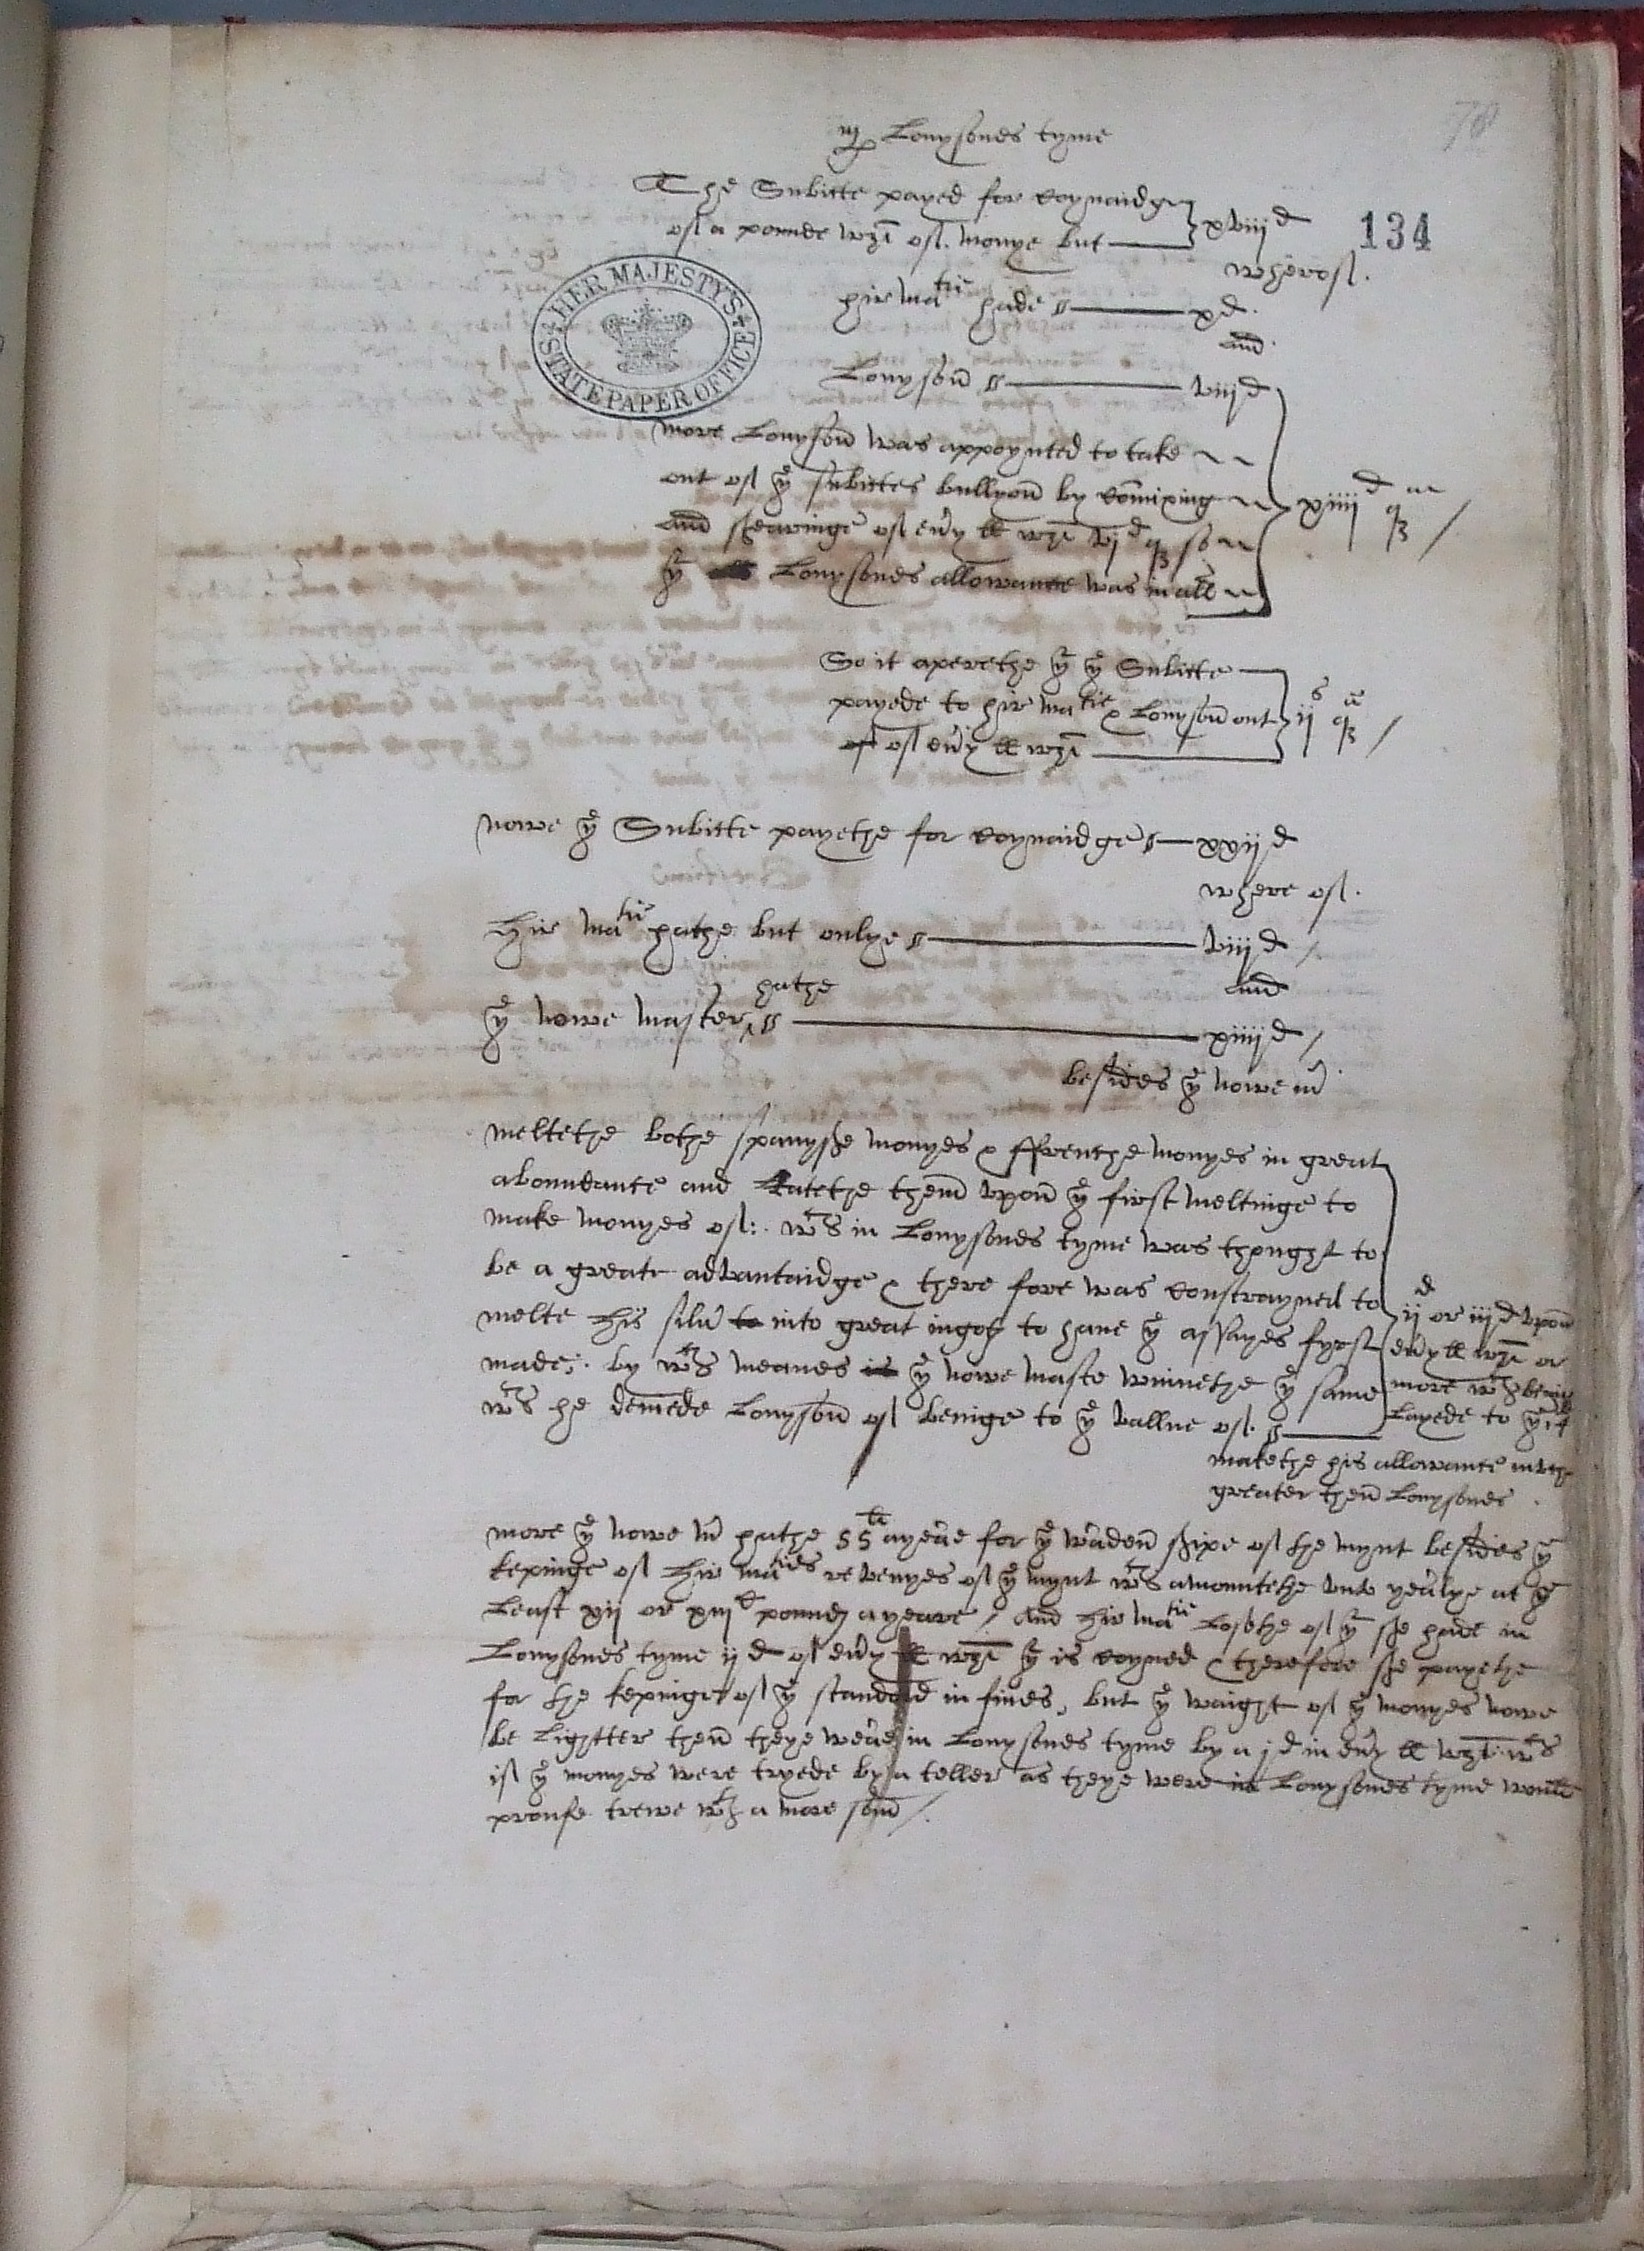 70
mr Lonysones tyme
The Subiecte payed for coynaidge
of a pounde wyt of monye but xviijd
134
wherof
HER MAJESTY'S
STATE PAPER OFFICE
hir matie hade xd
and
Lonyson viijd
more Lonyson was appoynted to take
out of ye subiectes bullyon by comixing
and shearinge of euy ll wyt vjd q so
yt Lonysones allowance was in all
xiiijd q
So it aperethe yt ye Subiecte
payede to hir matie & Lonyson out
of of euy ll wyt
ijs q
nowe ye Subiecte payethe for coynaidge xxijd
where of
hir matie hathe but onlye viijd
and
hathe
ye nowe master xiiijd
besides ye nowe mr
meltethe bothe spanyshe monyes & ffrenche monyes in great
aboundance and Catethe them vpon ye first meltinge to
make monyes of: wch in Lonysones tyme was thought to
be a greate advantaidge & there fore was constrayned to
melte his silu to into great ingot to haue ye assayes fyrst
made: by wch meanes is ye nowe maste winnethe ye same
wch he demede Lonyson of beinge to ye vallue of
ijd or iijd vpon
euy ll wyt or
more wch beinge
Layede to yt
makethe his allowance mvche
greater then Lonysones
more ye nowe mr hathe 55li a yeare for ye warden shipe of the mynt besides ye
kepinge of hir maties revenyes of ye mynt wch amountethe vnto yearlye at ye
Least xij or xiijC pounds a yeare / And hir matie Losethe of yt she hade in
Lonysones tyme ijd of euy ll wyt yt is coyned & therefore she payethe
for the kepinge of ye standerd in fines, but ye waight of ye monyes nowe
be Lightter then theye weare in Lonysones tyme by a jd in euy ll wyt wch
if ye monyes were tryede by a teller as theye were in Lonysones tyme would
proufe trewe wth a more som /